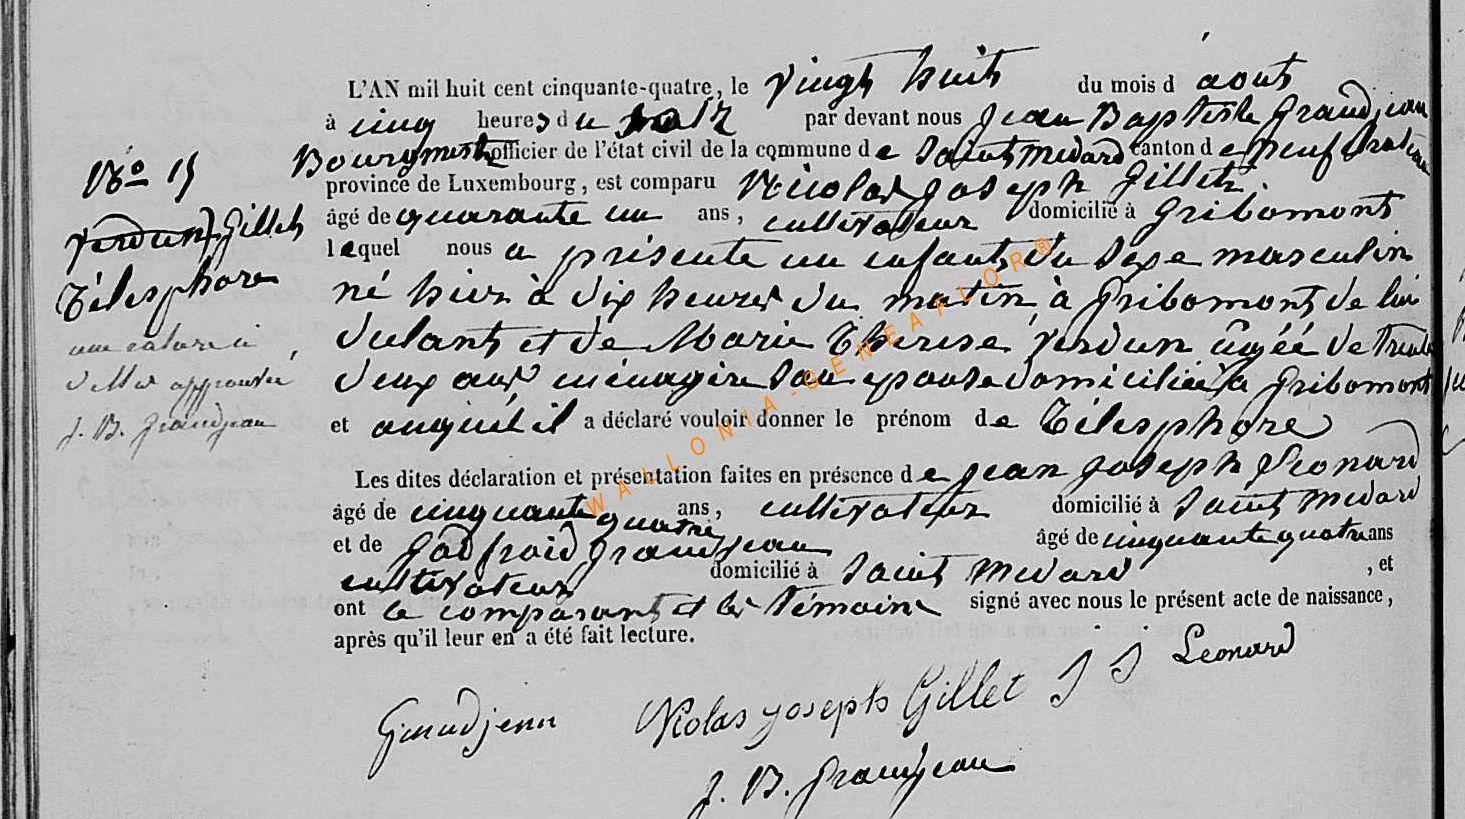 L'AN mil huit cent cinquante-quatre, le vingt huit du mois d'aout
à cinq heures du soir par devant nous Jean Baptiste Grandjean
Bourgmestre officier de l'état civil de la commune de Saint Medard canton de neufchateau
province de Luxembourg, est comparu Nicolas Joseph Gillet,
âgé de quarante un ans, cultivateur domicilié à Gribomont
lequel nous a présenté un enfant du sexe masculin
né hier à dix heures du matin, à Gribomont, de lui
déclarant et de Marie Therese Verdun âgée de trente
deux ans ménagère son epouse domiciliée à Gribomont
et auquel il a déclaré vouloir donner le prénom de Télesphore
Les dites déclaration et présentation faites en présence de Jean Joseph Léonard
âgé de cinquante quatre ans, cultivateur domicilié à Saint Medard
et de Godfroid Grandjean âgé de cinquante quatre ans
cultivateur domicilié à Saint Medard, et
ont le comparant et les témoins signé avec nous le présent acte de naissance,
après qu'il leur en a été fait lecture.
Grandjean Nicolas Joseph Gillet J J Leonard
J. B. Grandjean
No 15
Verdun Gillet
Télesphore
une rature ci
dessus approuvée
J. B. Grandjean
WALLONIA-GENEAFLOR®